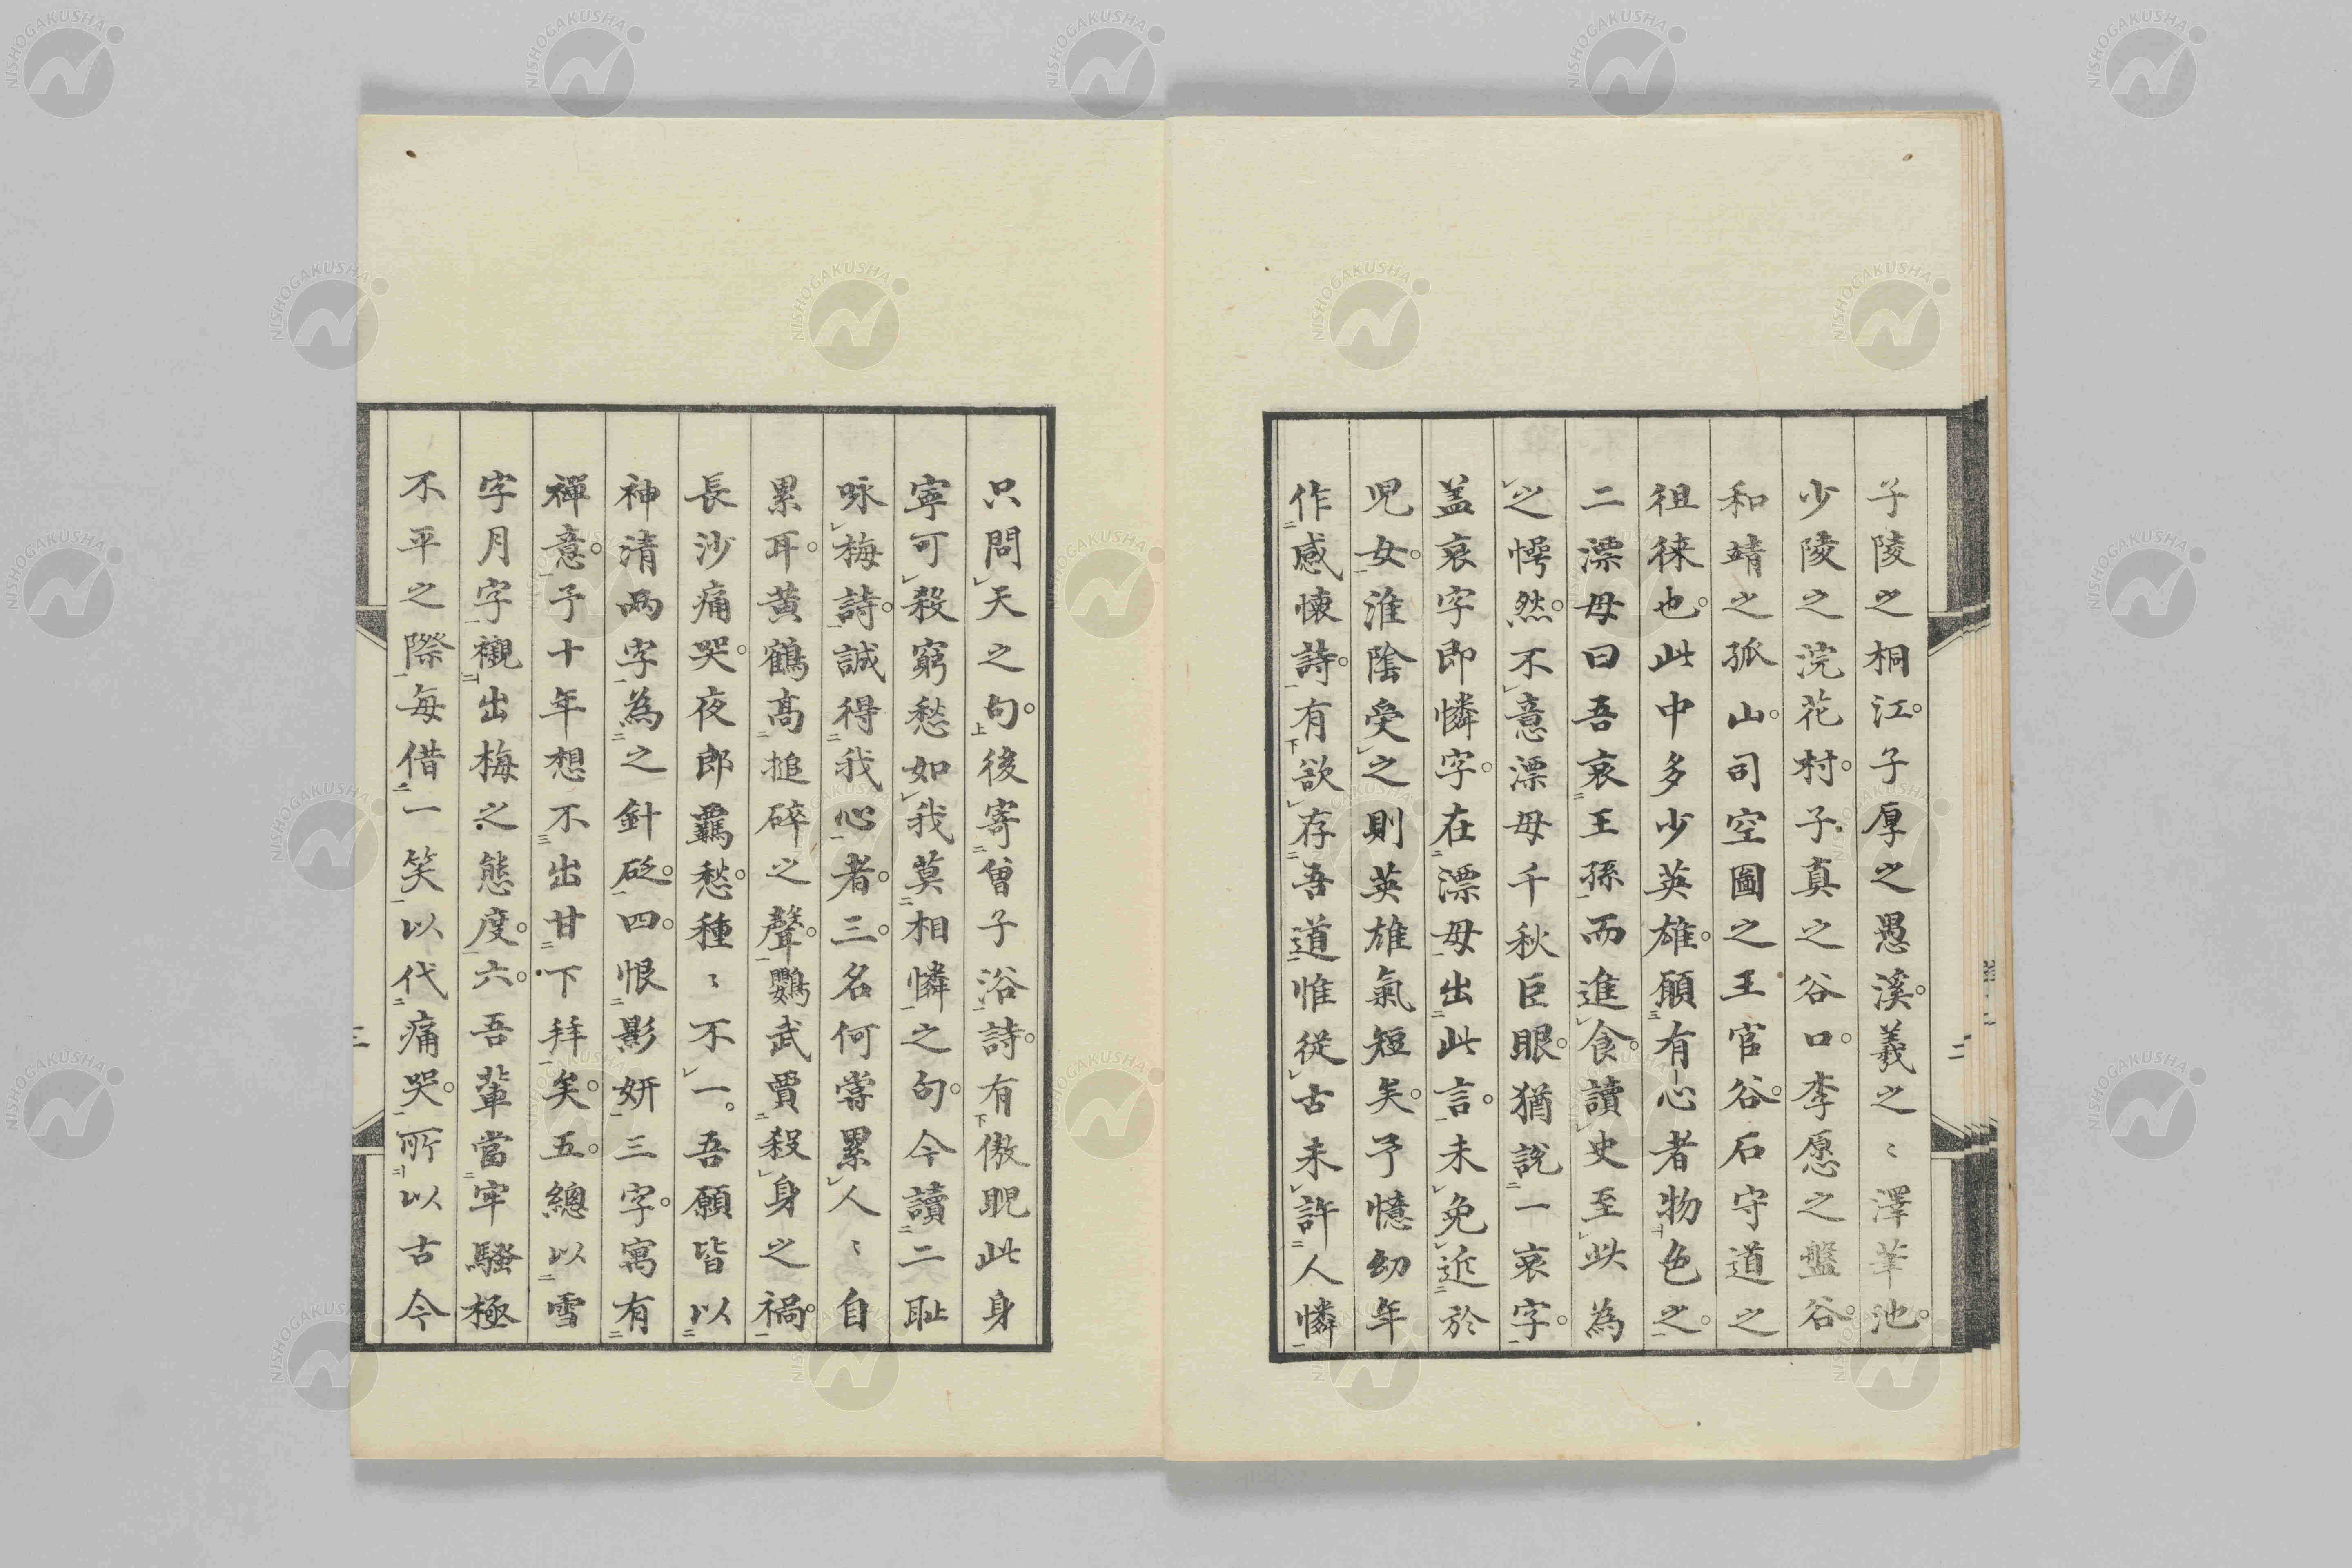 子陵之桐江。子厚之愚溪。羲之〻澤筆池。
少陵之浣花村。子真之谷口。李愿之盤谷。
和靖之孤山。司空圖之王官谷。石守道之
徂徠也。此中多少英雄。願有心者物色之。
二漂母曰吾哀王孫而進食。讀史至此為
之愕然。不意漂母千秋巨眼。猶說一哀字。
盖哀字即憐字。在漂母出此言。未免近於
児女。淮陰受之則英雄氣短矣。予憶幼年
作感懷詩。有欲存吾道惟從古未許人憐
二
只問天之句。後寄曾子浴詩。有傲睨此身
寧可殺窮愁如我莫相憐之句。今讀二耻
咏梅詩。誠得我心者。三。名何嘗累人〻自
累耳。黄鶴高搥碎之聲。鸚武賈殺身之禍。
長沙痛哭。夜郎羈愁。種〻不一。吾願皆以
神清兩字為之針砭。四。恨影妍三字。寓有
禪意。予十年想不出甘下拜矣。五。總以雪
字月字襯出梅之態度。六。吾輩當牢騷極
不平之際每借一笑以代痛哭。所以古今
三
NISHOGAKUSHA